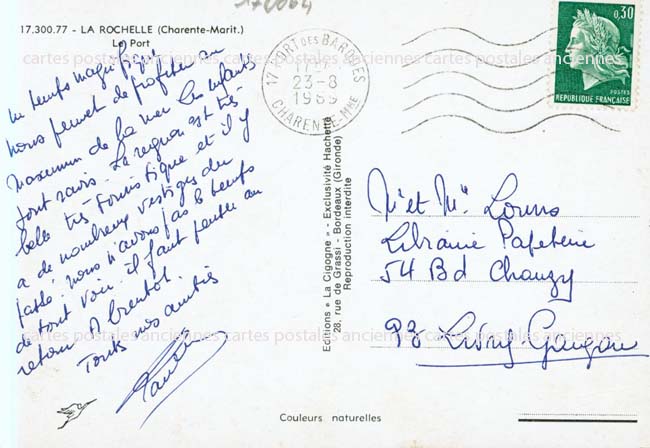 170064
17.300.77 - LA ROCHELLE (Charente-Marit.)
Le Port
Un temps magnifique
nous permet de profiter au
maximum de la mer les enfants
sont ravis. La region est très
belle très touristique et il y
a de nombreux vestiges du
passé, nous n'avons pas le temps
de tout voir. il faut penser au
retour. A bientôt.
Toutes nos amitiés
17 PORT DES BARQUES
23-8
1969
CHARENTE-MME
0,30
POSTES
REPUBLIQUE FRANÇAISE
Editions « La Cigogne » - Exclusivité Hachette
28, rue de Grassi - Bordeaux (Gironde)
Reproduction interdite
Mr et Me
Librairie Papeterie
54 Bd Chanzy
93 Livry-Gargan
Couleurs naturelles
cartes postales anciennes cartes postales anciennes cartes postales anciennes
cartes postales anciennes cartes postales anciennes cartes postales anciennes